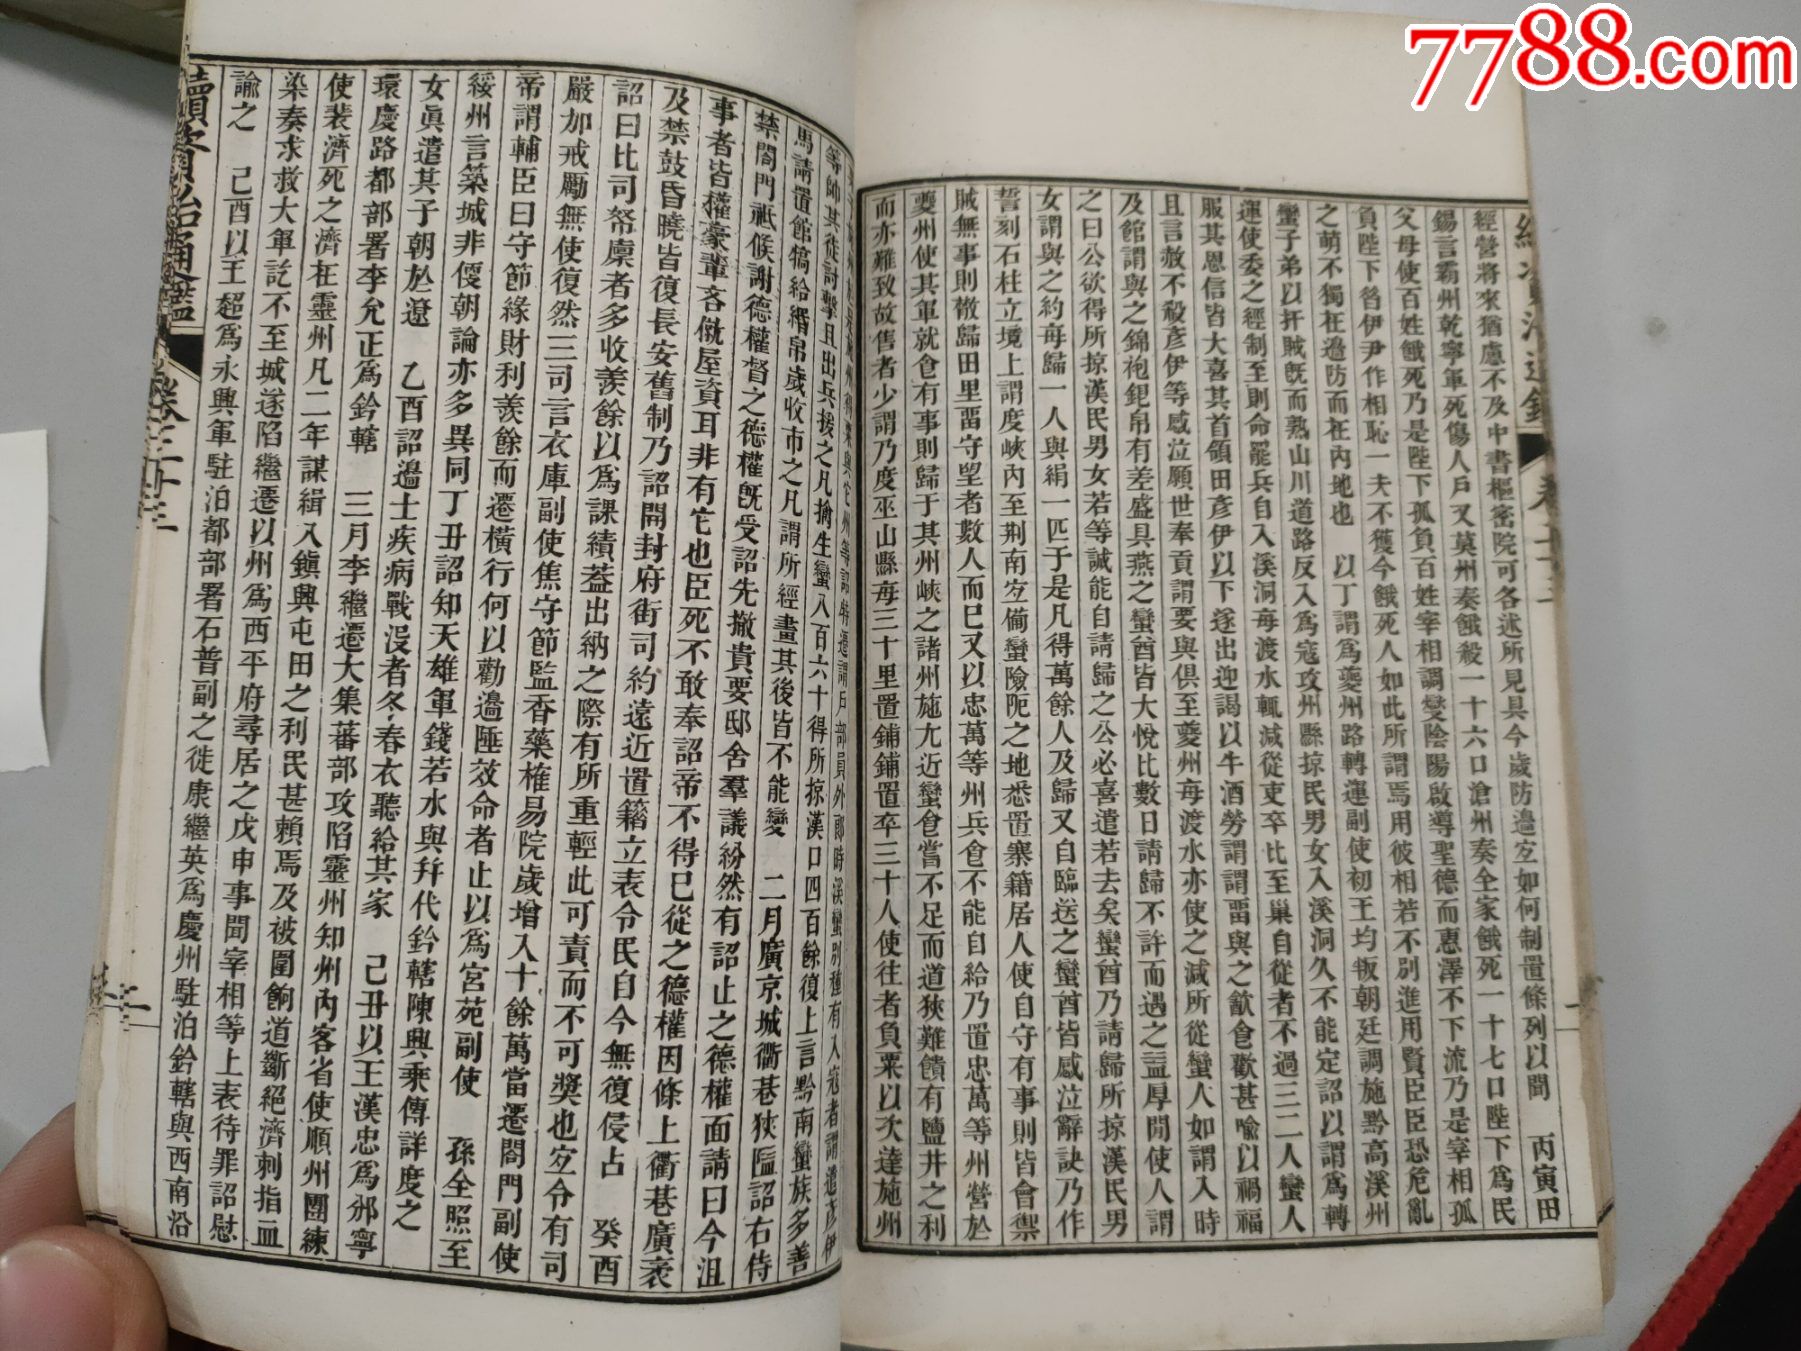 7788.com
續資治通鑑
卷二十三
經營將來猶慮不及中書樞密院可各述所見具今歲防邊宐如何制置條列以聞 丙寅田
錫言霸州乾寧軍死傷人戶又莫州奏餓殺一十六口滄州奏全家餓死一十七口陛下爲民
父母使百姓餓死乃是陛下孤負百姓宰相調變陰陽啟導聖德而惠澤不下流乃是宰相孤
負陛下昝伊尹作相恥一夫不獲今餓死人如此所謂焉用彼相若不別進用賢臣臣恐危亂
之萌不獨在邊防而在內地也 以丁謂爲夔州路轉運副使初王均叛朝廷調施黔高溪州
蠻子弟以扞賊旣而熟山川道路反入爲寇攻州縣掠民男女入溪洞久不能定詔以謂爲轉
運使委之經制至則命罷兵自入溪洞每渡水輒減從吏卒比至巢自從者不過三二人蠻人
服其恩信皆大喜其首領田彥伊以下遂出迎謁以牛酒勞謂謂畱與之飮食歡甚喻以禍福
且言赦不殺彥伊等感泣願世奉貢謂要與俱至夔州每渡水亦使之減所從蠻人如謂入時
及館謂與之錦袍銀帛有差盛具燕之蠻酋皆大悅比數日請歸不許而遇之益厚閒使人謂
之曰公欲得所掠漢民男女若等誠能自請歸之公必喜遣若去矣蠻酋乃請歸所掠漢民男
女謂與之約每歸一人與絹一匹于是凡得萬餘人及歸又自臨送之蠻酋皆感泣辭訣乃作
誓刻石柱立境上謂度峽內至荆南宐備蠻險阨之地悉置寨籍居人使自守有事則皆會禦
賊無事則散歸田里畱守望者數人而已又以忠萬等州兵食不能自給乃置忠萬等州營於
夔州使其軍就食有事則歸于其州峽之諸州施尢近蠻食嘗不足而道狹難饋有鹽井之利
而亦難致故售者少謂乃度巫山縣每三十里置鋪鋪置卒三十人使往者負粟以次達施州
等帥其徒討擊且出兵援之凡擒生蠻八百六十得所掠漢口四百餘復上言黔南蠻族多善
馬請置館犒給緡帛歲收市之凡謂所經畫其後皆不能變 二月廣京城衢巷狹隘詔右侍
禁閤門祇候謝德權督之德權旣受詔先撤貴要邸舍羣議紛然有詔止之德權面請曰今沮
事者皆權豪輩吝僦屋資耳非有它也臣死不敢奉詔帝不得已從之德權因條上衢巷廣袤
及禁鼓昏曉皆復長安舊制乃詔開封府街司約遠近置籍立表令民自今無復侵占 癸酉
詔曰比司帑廪者多收羨餘以爲課績葢出納之際有所重輕此可責而不可奬也宐令有司
嚴加戒勵無使復然三司言衣庫副使焦守節監香藥榷易院歲增入十餘萬當遷閤門副使
帝謂輔臣曰守節緣財利羨餘而遷橫行何以勸邊陲效命者止以爲宮苑副使 孫全照至
綏州言築城非便朝論亦多異同丁丑詔知天雄軍錢若水與幷代鈐轄陳興乘傳詳度之
女眞遣其子朝於遼 乙酉詔邊士疾病戰沒者冬春衣聽給其家 己丑以王漢忠爲邠寧
環慶路都部署李允正爲鈐轄 三月李繼遷大集蕃部攻陷靈州知州內客省使順州團練
使裴濟死之濟在靈州凡二年謀緝入鎭興屯田之利民甚賴焉及被圍餉道斷絕濟刺指血
染奏求救大軍訖不至城遂陷繼遷以州爲西平府尋居之戊申事聞宰相等上表待罪詔慰
諭之 己酉以王超爲永興軍駐泊都部署石普副之徙康繼英爲慶州駐泊鈐轄與西南沿
續資治通鑑
卷二十三
二